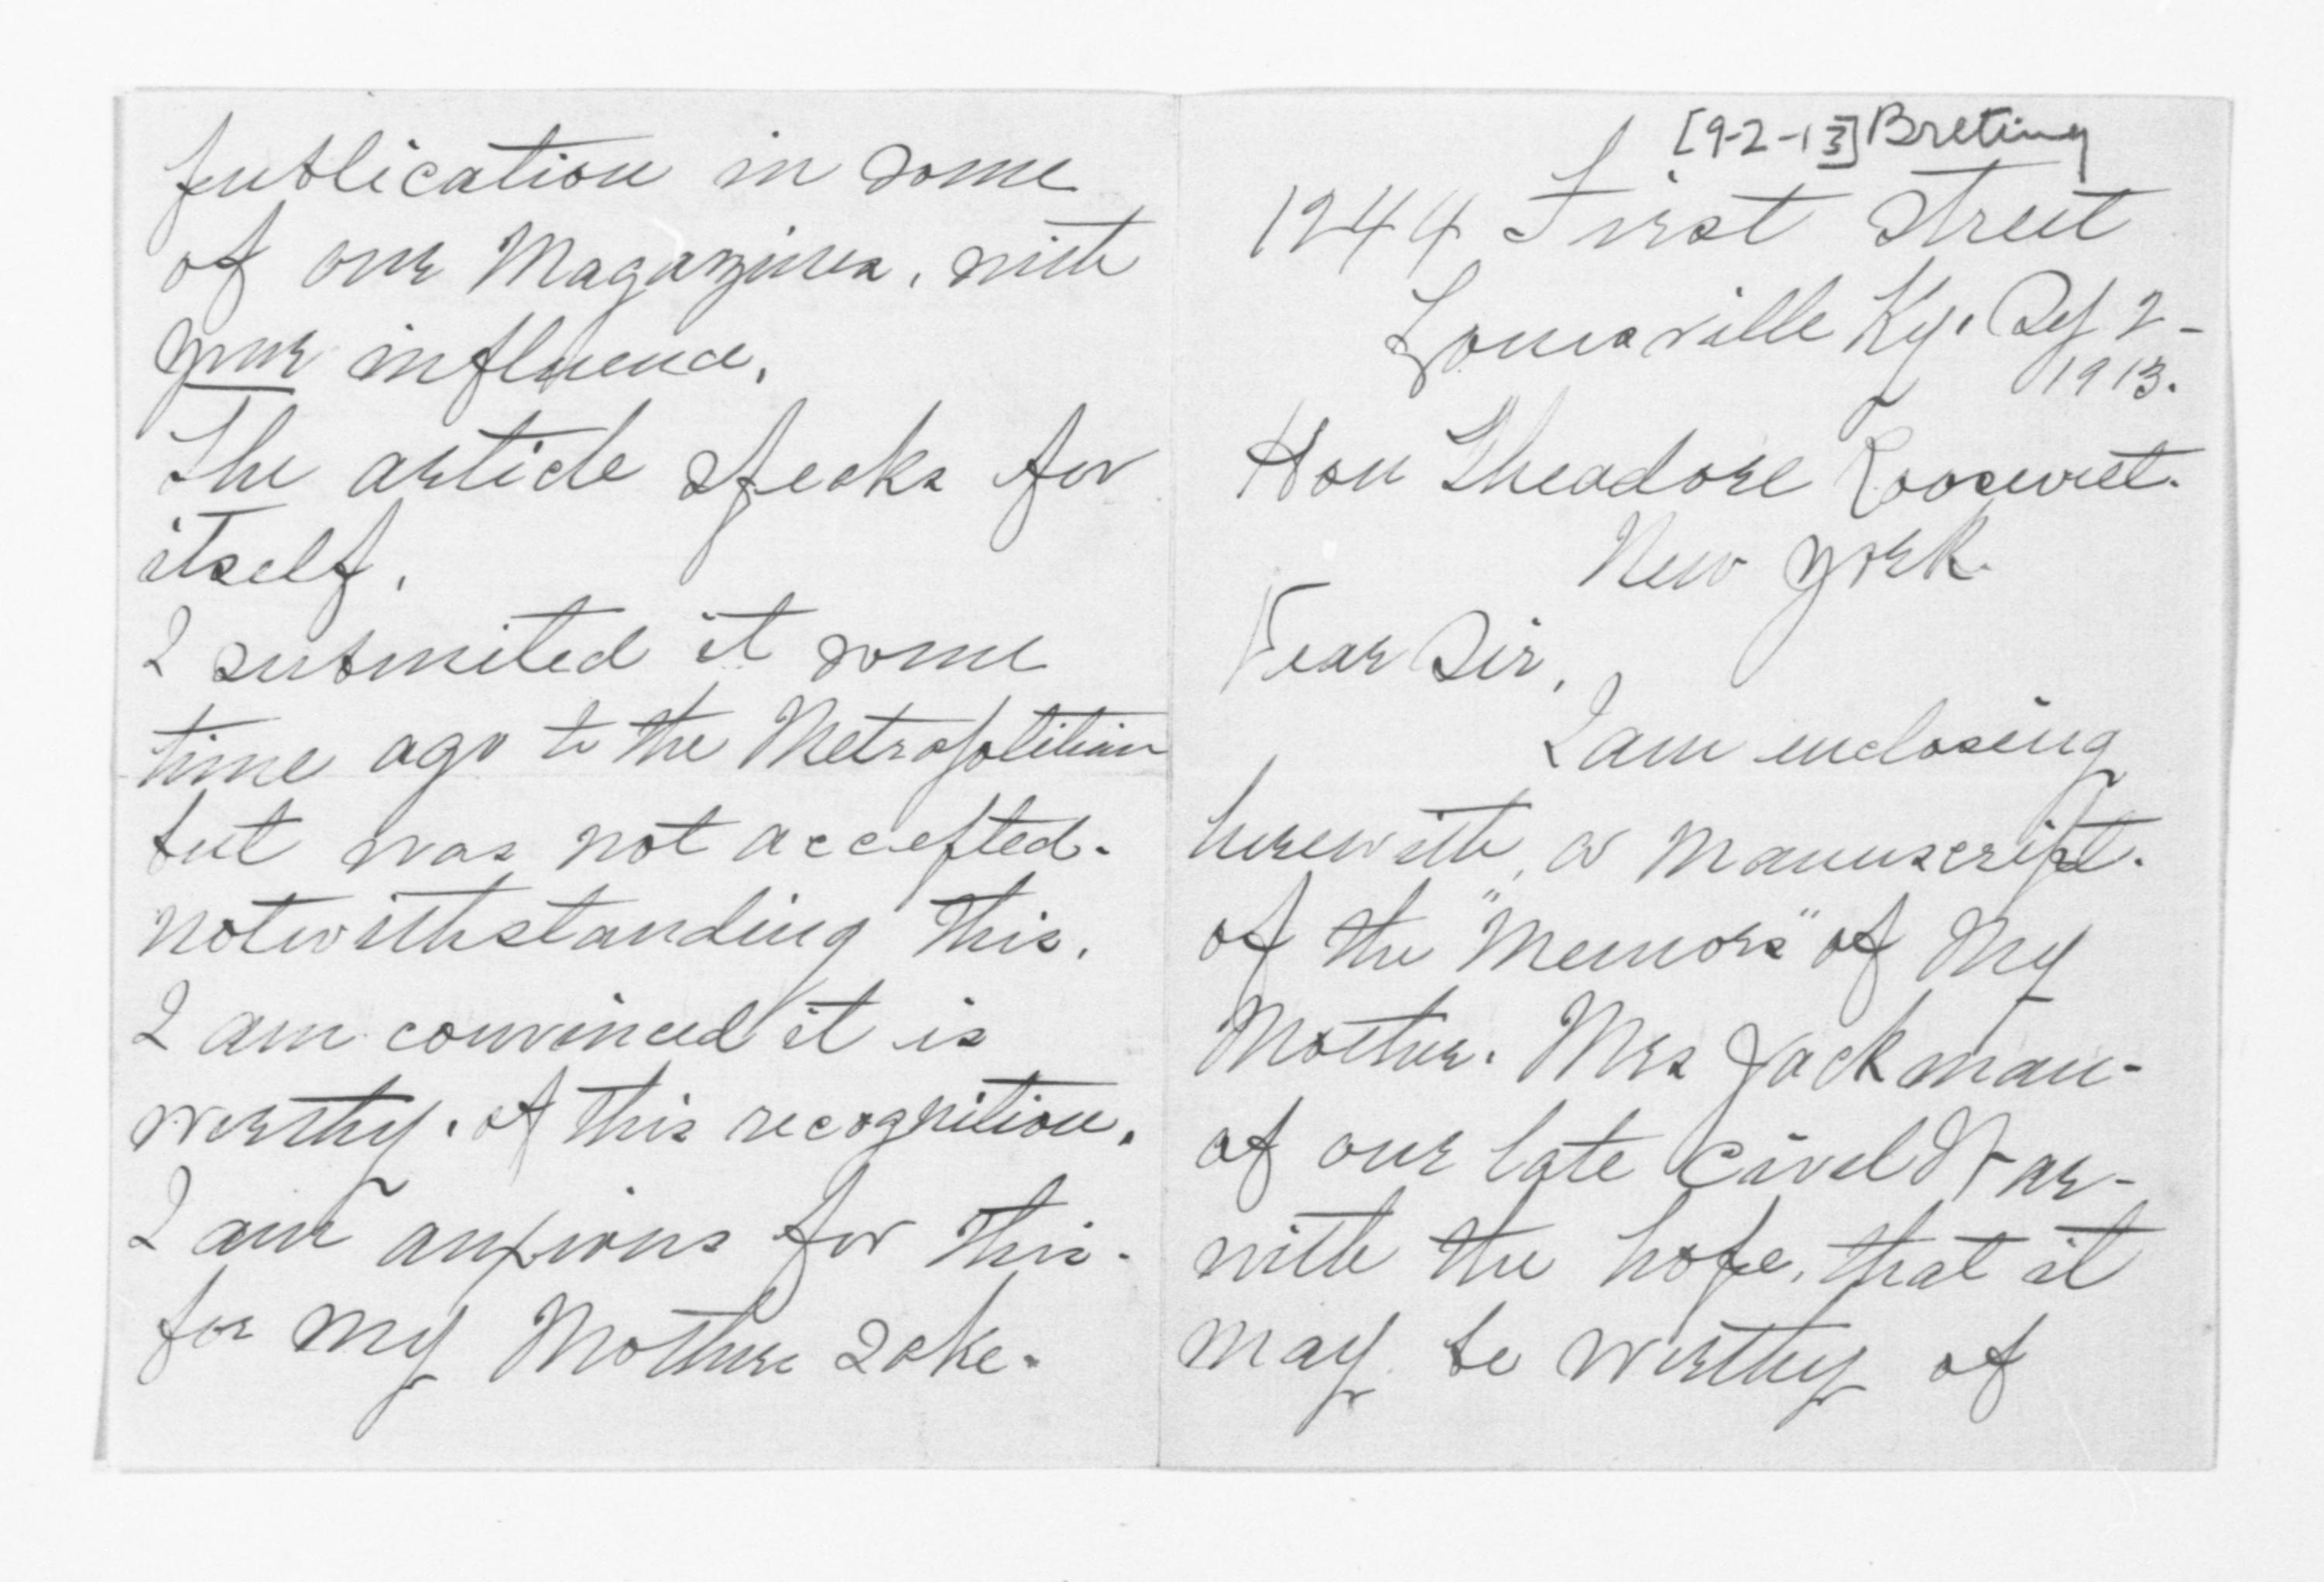 [9-2-13] Breting
1244 First Street
Louisville Ky. Sep 2-
1913.
Hon Theadore Roosevelt.
New York.
Dear Sir,
I am enclosing
herewith, a Manuscript.
of the "Memors" of My
Mother. Mrs Jackman-
of our late Civel War-
with the hope, that it
may be worthy of
publication in some
of our Magazines, with
your influence.
The article speaks for
itself.
I submited it some
time ago to the Metropolitian
but was not accepted.
notwithstanding this.
I am convinced it is
worthy. of this recognition.
I am anxious for this.
for my Mothers sake.